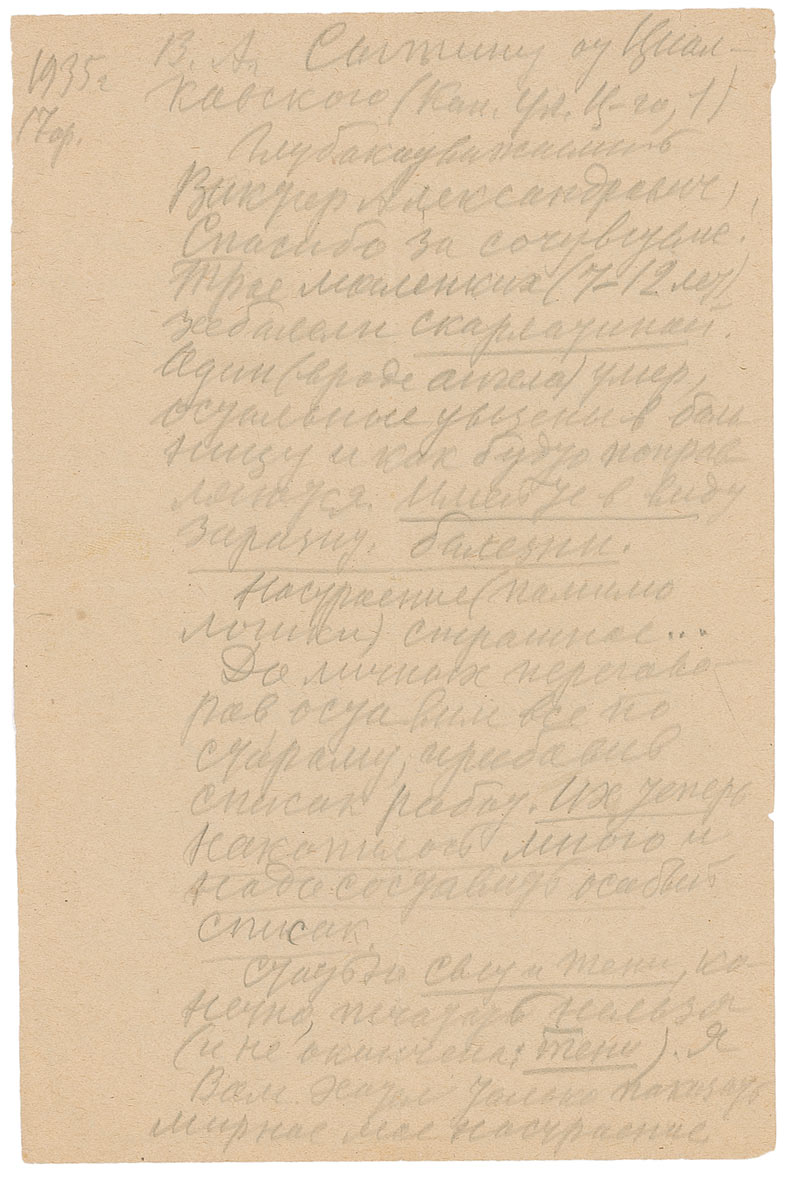 1935 г
17 ар.
В. А. Сытину от Циол-
ковского (Кал. ул. Ц-го, 1)
Глубокоуважаемый
Виктор Александрович,
Спасибо за сочувствие.
Трое маленьких (7–12 лет)
заболели скарлатиной.
Один (вроде ангела) умер,
остальные увезены в боль
ницу и как будто поправ
ляются. Имейте в виду
заразит. болезни.
Настроение (помимо
логики) страшное...
До личных перегово-
ров оставим все по
старому, прибавив
список работ. Их теперь
накопилось много и
надо составить особый
список.
Статью Свет и тени, ко-
нечно, печатать нельзя
(и не окончена: тени). Я
Вам хотел только показать
мирное мое настроение